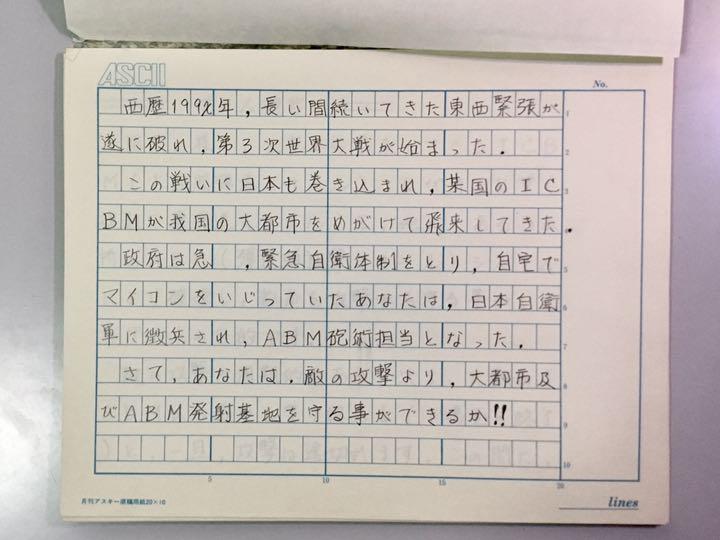 ASCII
No.
西歴199X年，長い間続いてきた東西緊張が
遂に破れ，第3次世界大戦が始まった．
この戦いに日本も巻き込まれ，某国のIC
BMが我国の大都市をめがけて飛来してきた．
政府は急，緊急自衛体制をとり，自宅で
マイコンをいじっていたあなたは，日本自衛
軍に徴兵され，ABM砲術担当となった．
さて，あなたは，敵の攻撃より，大都市及
びABM発射基地を守る事ができるか!!
1
2
3
4
5
6
7
8
9
10
5 10 15 20
月刊アスキー原稿用紙20×10
lines